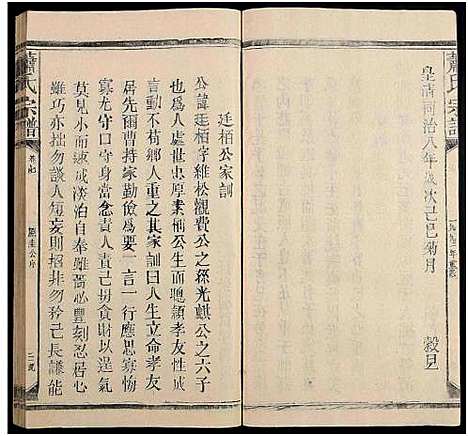 蕭氏宗譜
皇清同治八年歲次己巳菊月
穀旦
廷栢公家訓
公諱廷栢字維松觀費公之孫光麒公之六子
也爲人處世忠厚素稱公生而聰頴孝友性成
言動不苟鄉人重之其家訓曰人生立命孝友
居先爾曹持家勤儉爲要一言一行應思寡悔
寡尤守己守身當念責人責己毋貪財以逞氣
莫見小而速成淡泊自奉雖嗇必豐刻忍居心
雖巧亦拙勿談人短妄則招非勿矜己長謙能
蕭氏宗譜